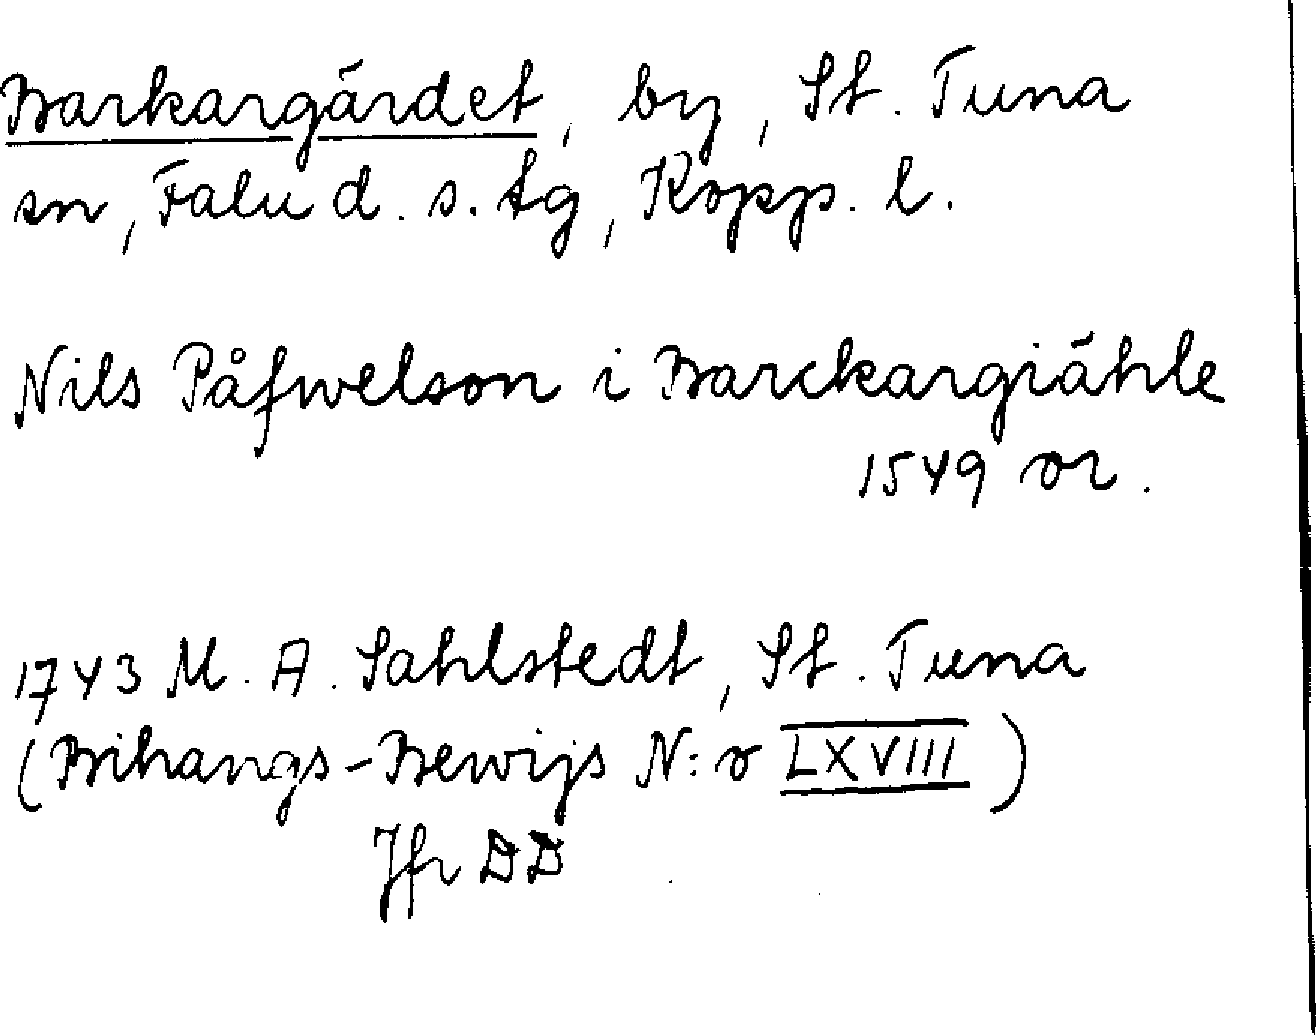 Barkargärdet, by, St. Tuna
sn, Falu d. s. tg, Kopp. l.
Nils Påfwelson i Barckargiähle
1549 or.
1743 M. A. Sahlstedt, St. Tuna
(Bihangs-Bewijs N:o LXVIII)
Jfr DD